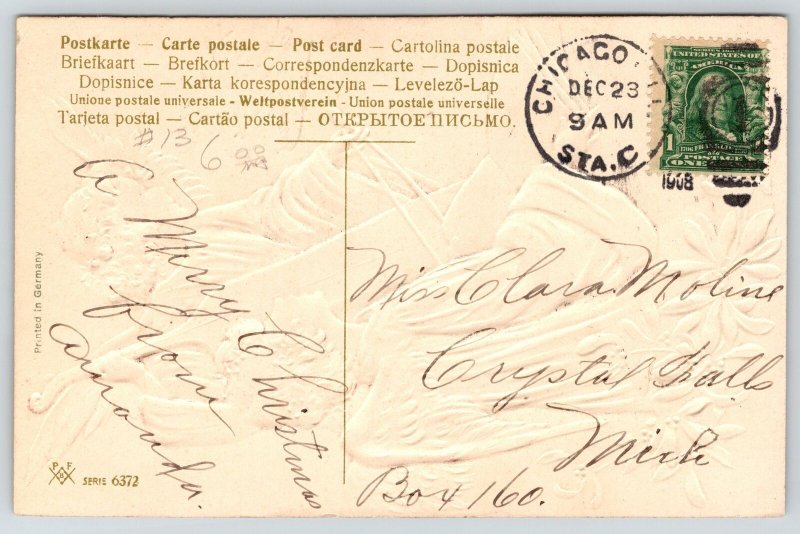 Postkarte — Carte postale — Post card — Cartolina postale
Briefkaart — Brefkort — Correspondenzkarte — Dopisnica
Dopisnice — Karta korespondencyjna — Levelező-Lap
Unione postale universale - Weltpostverein - Union postale universelle
Tarjeta postal — Cartão postal — ОТКРЫТОЕ ПИСЬМО.
#13 6 00
CHICAGO, ILL
DEC 23
9 AM
STA. C
1908
UNITED STATES OF
AMERICA
1 FRANKLIN
POSTAGE
ONE
A Merry Christmas
from
Amanda.
Miss Clara Moline
Crystal Falls
Mich
Box 160.
Printed in Germany
P F
B
SERIE 6372